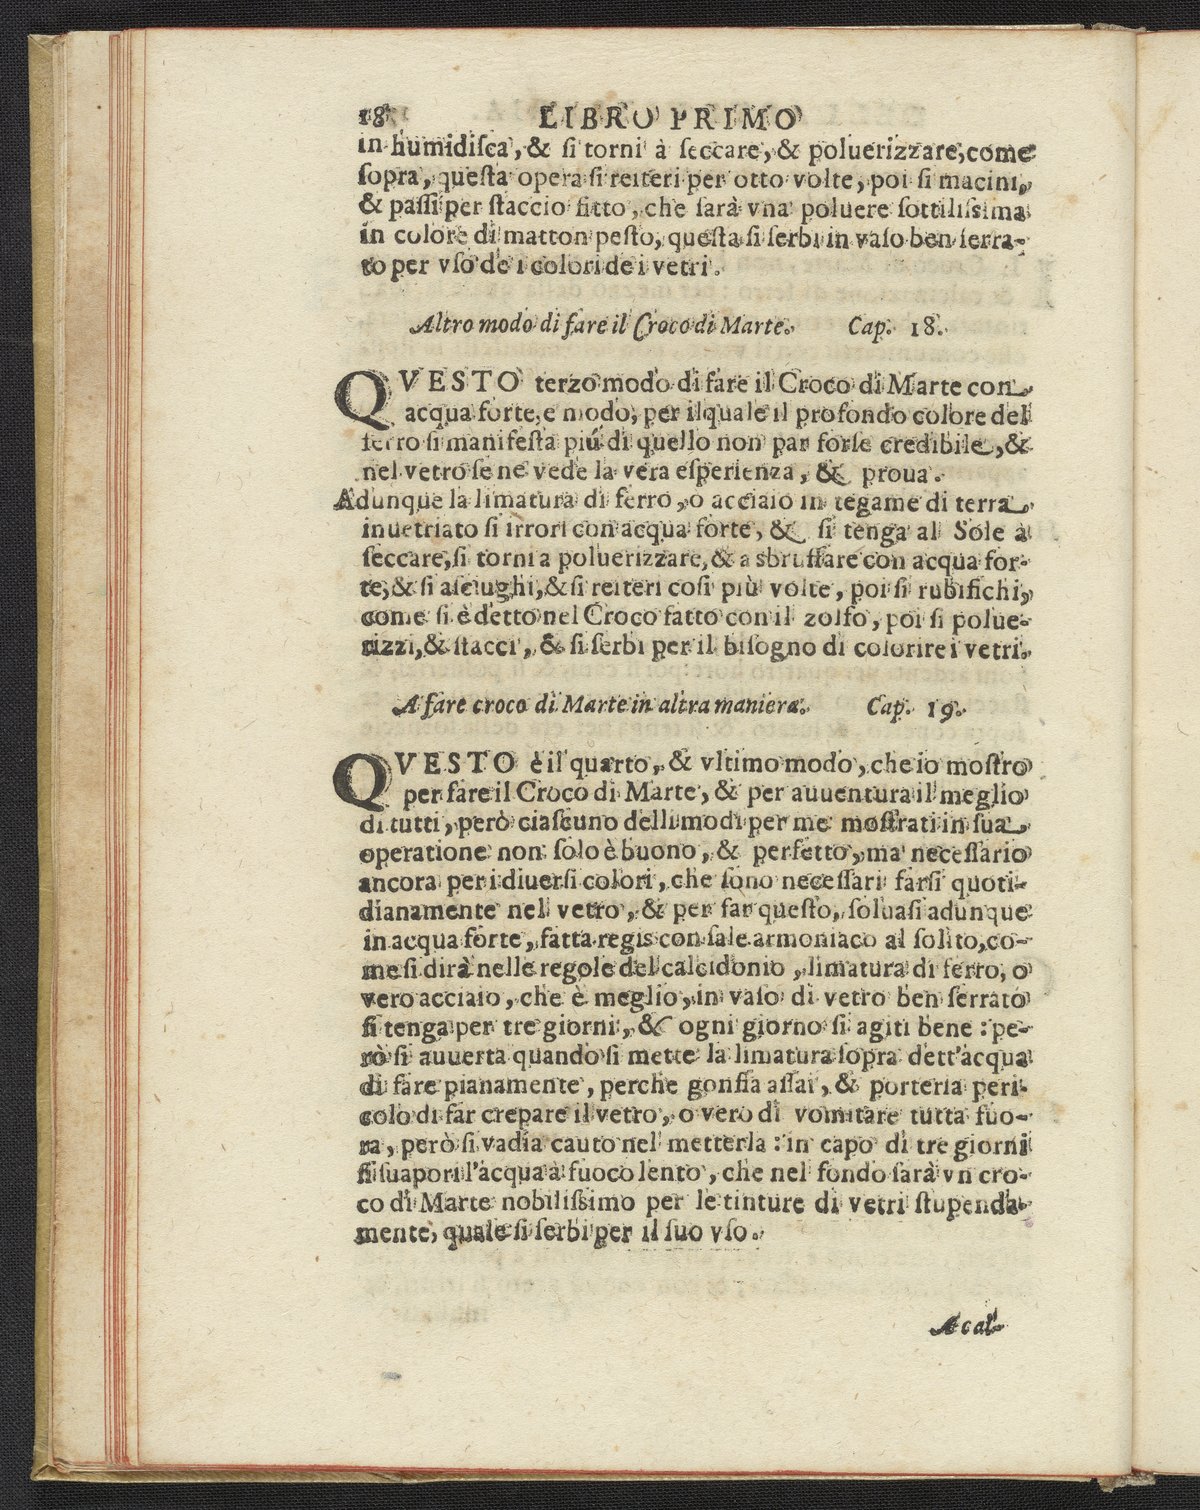 18 LIBRO PRIMO
in humidisca, & si torni à seccare, & poluerizzare, come
sopra, questa opera si reiteri per otto volte, poi si macini,
& passi per staccio fitto, che sarà vna poluere sottilissima
in colore di matton pesto, questa si serbi in vaso ben serra-
to per vso de i colori de i vetri.
Altro modo di fare il Croco di Marte. Cap. 18.
QVESTO terzo modo di fare il Croco di Marte con
acqua forte, e modo, per il quale il profondo colore del
ferro si manifesta più di quello non par forse credibile, &
nel vetro se ne vede la vera esperienza, & proua.
Adunque la limatura di ferro, o acciaio in tegame di terra
inuetriato si irrori con acqua forte, & si tenga al Sole a
seccare, si torni a poluerizzare, & a sbruffare con acqua for-
te, & si asciughi, & si reiteri così più volte, poi si rubifichi,
come si è detto nel Croco fatto con il zolfo, poi si polue-
rizzi, & stacci, & si serbi per il bisogno di colorire i vetri.
A fare croco di Marte in altra maniera. Cap. 19.
QVESTO è il quarto, & vltimo modo, che io mostro
per fare il Croco di Marte, & per auuentura il meglio
di tutti, però ciascuno delli modi per me mostrati in sua
operatione non solo è buono, & perfetto, ma necessario
ancora per i diuersi colori, che sono necessari farsi quoti-
dianamente nel vetro, & per far questo, soluasi adunque
in acqua forte, fatta regis con sale armoniaco al solito, co-
me si dirà nelle regole del calcidonio, limatura di ferro, o
vero acciaio, che è meglio, in vaso di vetro ben serrato
si tenga per tre giorni, & ogni giorno si agiti bene: pe-
rò si auuerta quando si mette la limatura sopra dett'acqua
di fare pianamente, perche gonfia assai, & porteria peri-
colo di far crepare il vetro, o vero di vomitare tutta fuo-
ra, però si vadia cauto nel metterla: in capo di tre giorni
si suapori l'acqua à fuoco lento, che nel fondo sarà vn cro-
co di Marte nobilissimo per le tinture di vetri stupenda-
mente, quale si serbi per il suo vso.
A cal-